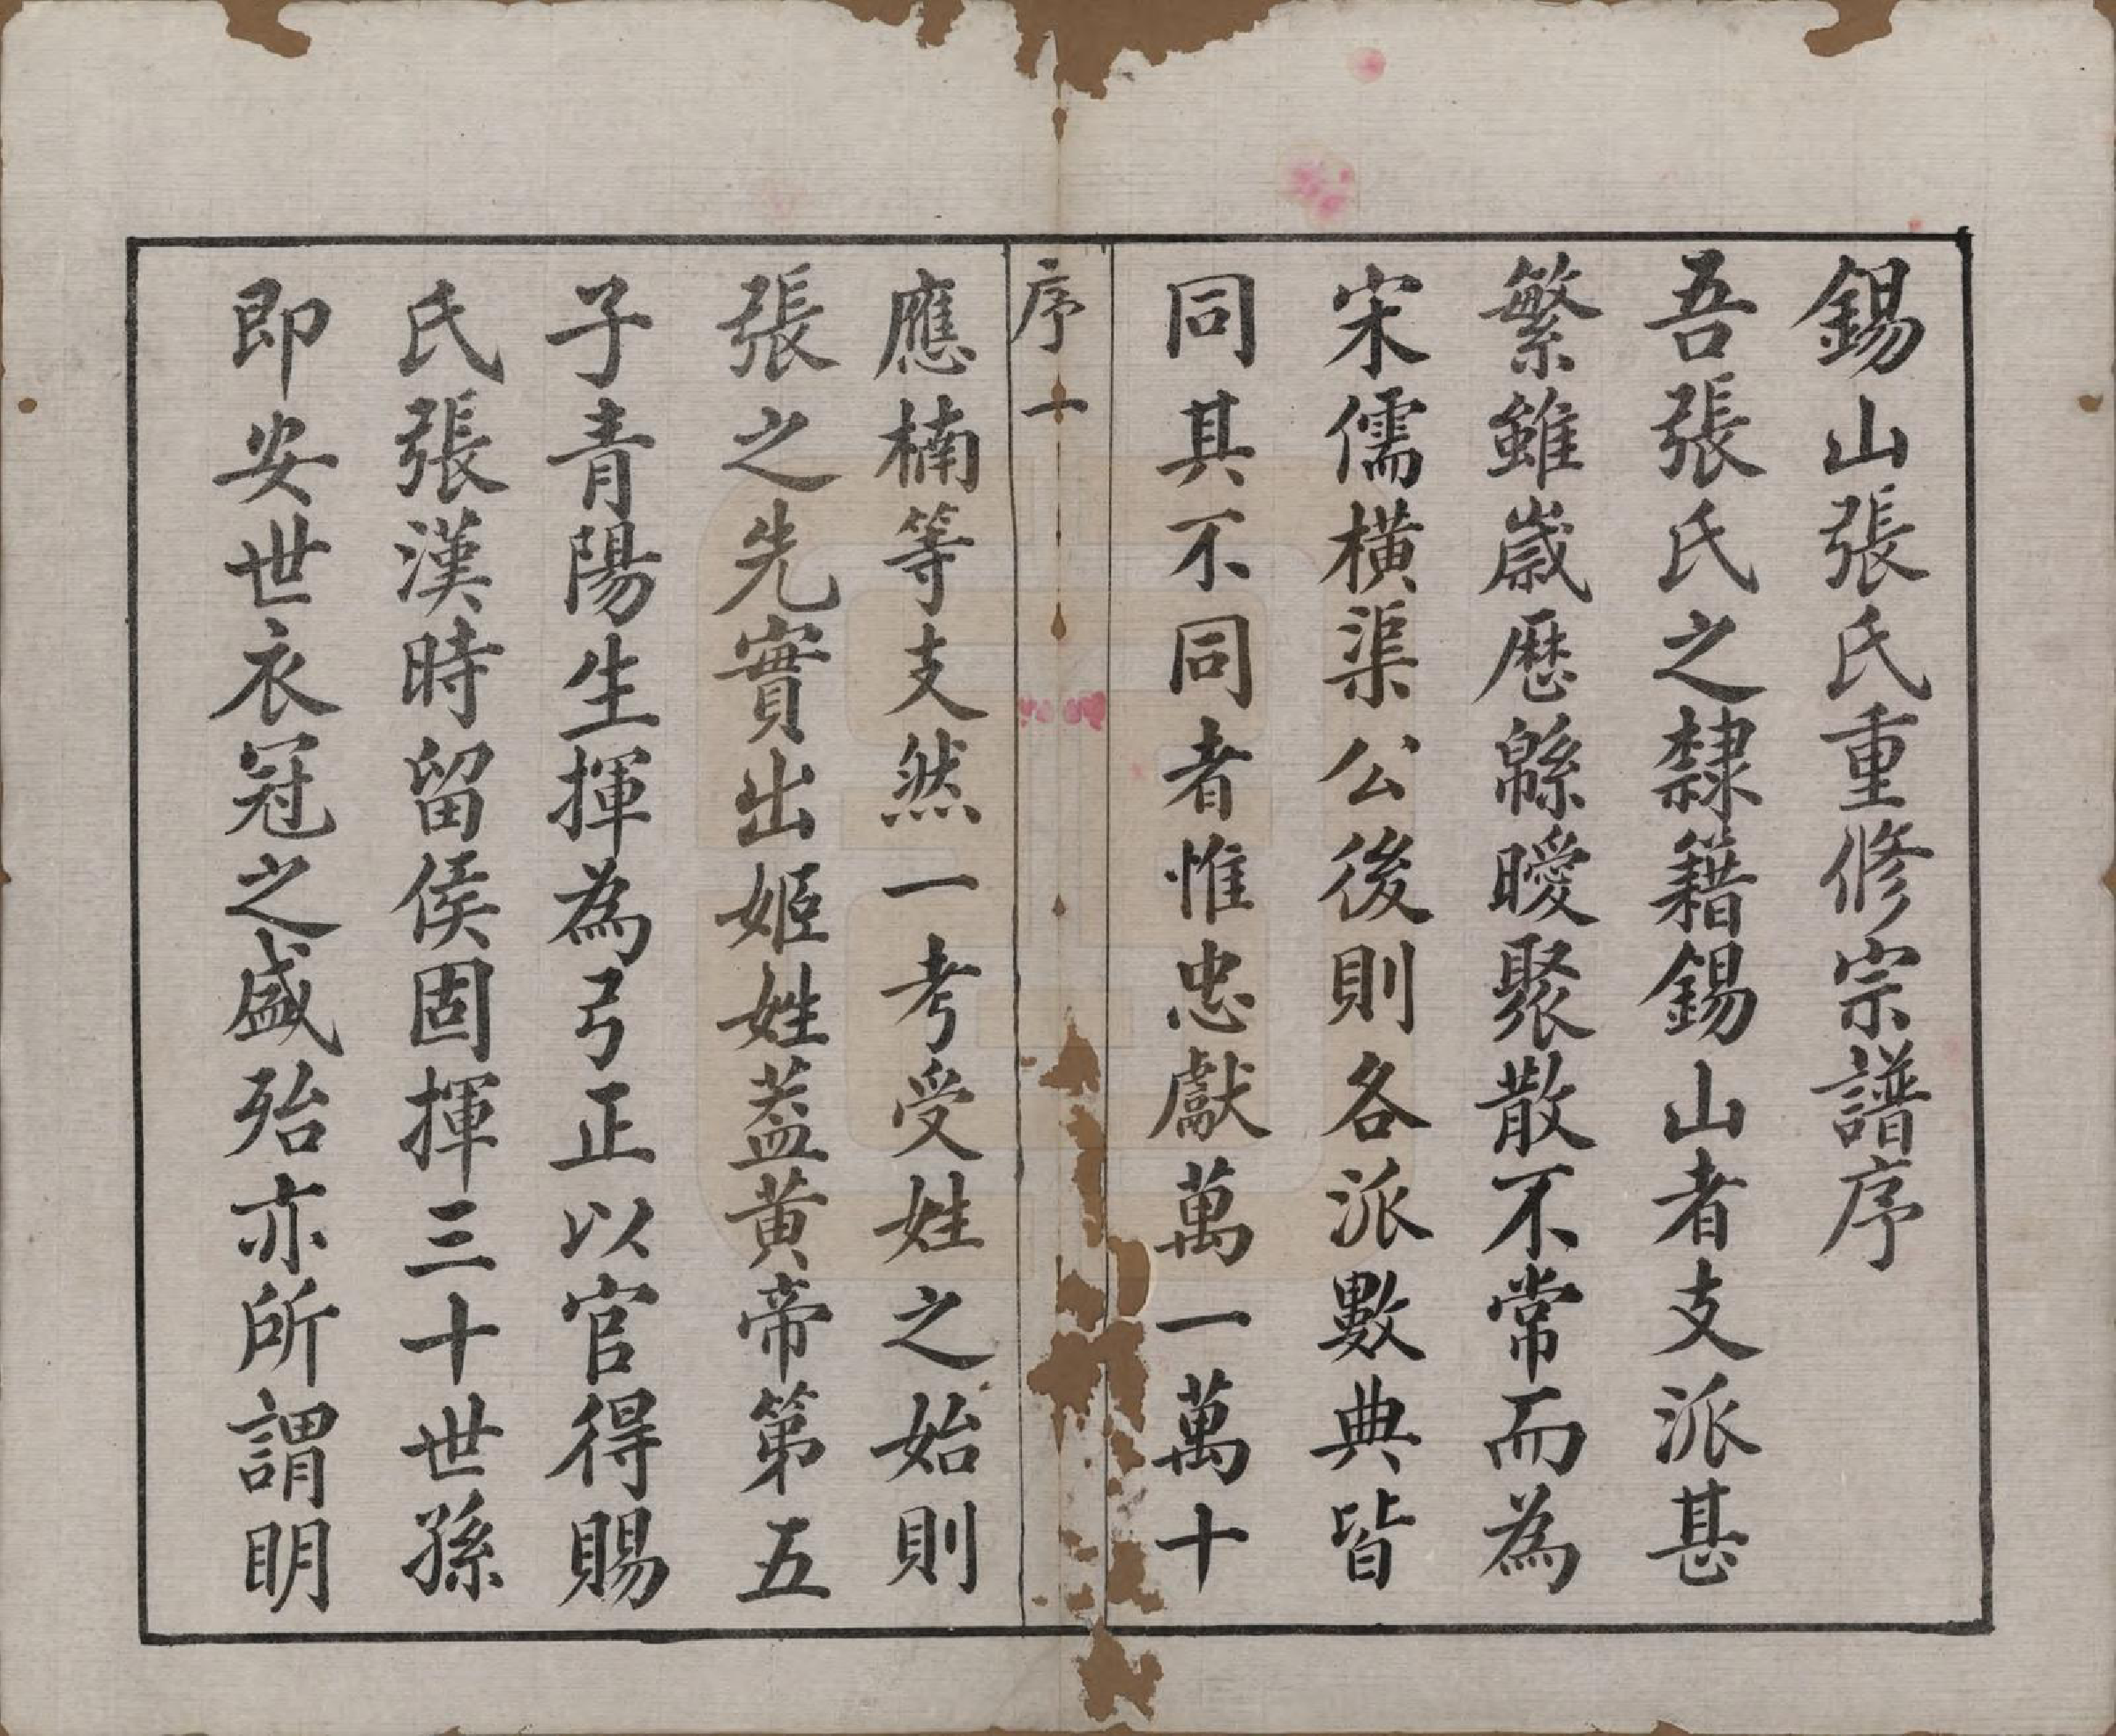 錫山張氏重修宗譜序
吾張氏之隸籍錫山者支派甚
繁雖歲歷緜曖聚散不常而為
宋儒橫渠公後則各派數典皆
同其不同者惟忠獻萬一萬十
序 一
應楠等支然一考受姓之始則
張之先實出姬姓蓋黃帝第五
子青陽生揮為弓正以官得賜
氏張漢時留侯固揮三十世孫
即安世衣冠之盛殆亦所謂明